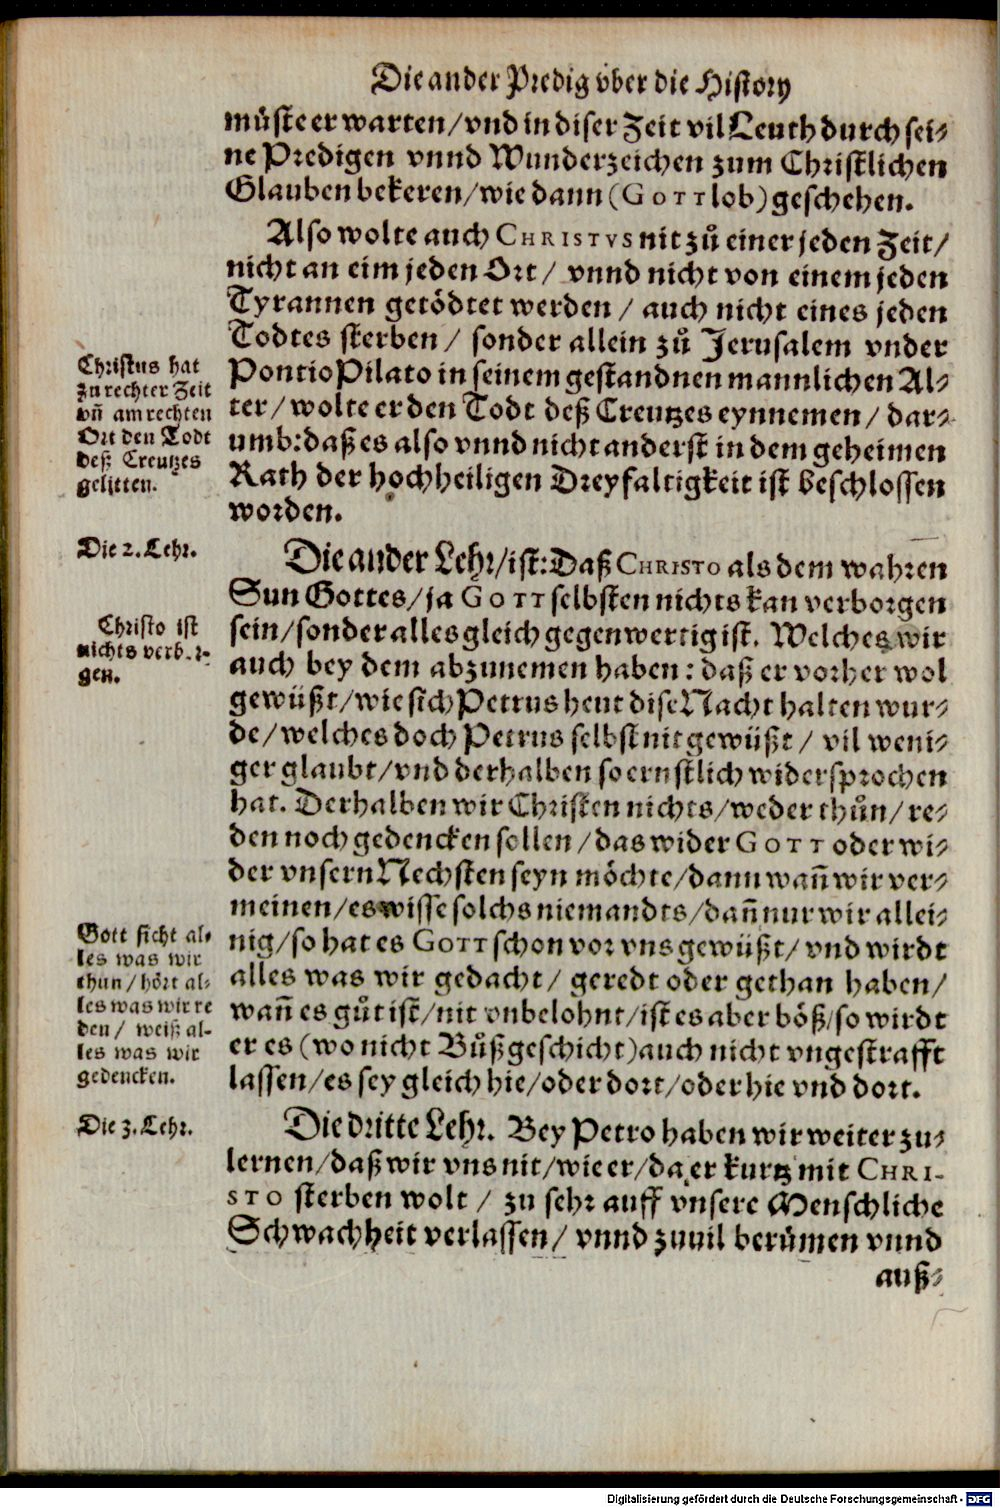 Die ander Predig vber die History
můste erwarten/vnd in diser Zeit vil Leuth durch sei⸗
ne Predigen vnnd Wunderzeichen zum Christlichen
Glauben bekeren/wie dann (GOTT lob) geschehen.
Also wolte auch CHRISTVS nit zů einer jeden Zeit/
nicht an eim jeden Ort/ vnnd nicht von einem jeden
Tyrannen getödtet werden / auch nicht eines jeden
Todtes sterben / sonder allein zů Jerusalem vnder
Pontio Pilato in seinem gestandnen mannlichen Al⸗
ter/wolte er den Todt deß Creutzes eynnemen / dar⸗
umb: daß es also vnnd nicht anderst in dem geheimen
Rath der hochheiligen Dreyfaltigkeit ist beschlossen
worden.
Christus hat
zu rechter Zeit
vñ am rechten
Ort den Todt
deß Creutzes
gelitten.
Die 2. Lehr.
Die ander Lehr/ist: Daß CHRISTO als dem wahren
Sun Gottes/ja GOTT selbsten nichts kan verborgen
sein/sonder alles gleich gegenwertig ist. Welches wir
auch bey dem abzunemen haben: daß er vorher wol
gewüßt/wie sich Petrus heut dise Nacht halten wur⸗
de/welches doch Petrus selbst nit gewüßt / vil weni⸗
ger glaubt/vnd derhalben so ernstlich widersprochen
hat. Derhalben wir Christen nichts/weder thůn/re⸗
den noch gedencken sollen/das wider GOTT oder wi⸗
der vnsern Nechsten seyn möchte/dann wañ wir ver⸗
meinen/es wisse solchs niemandts/dañ nur wir allei⸗
nig/so hat es GOTT schon vor vns gewüßt/vnd wirdt
alles was wir gedacht/ geredt oder gethan haben/
wañ es gůt ist/nit vnbelohnt/ist es aber böß/so wirdt
er es (wo nicht Bůß geschicht) auch nicht vngestrafft
lassen/es sey gleich hie/oder dort/oder hie vnd dort.
Christo ist
nichts verb.r⸗
gen.
Gott sicht al⸗
les was wir
thun/hört al⸗
les was wir re
den/ weiß al⸗
les was wir
gedencken.
Die 3. Lehr.
Die dritte Lehr. Bey Petro haben wir weiter zu⸗
lernen/daß wir vns nit/wie er/da er kurtz mit CHRI-
STO sterben wolt / zu sehr auff vnsere Menschliche
Schwachheit verlassen/ vnnd zuuil berůmen vnnd
auß⸗
Digitalisierung gefördert durch die Deutsche Forschungsgemeinschaft - DFG